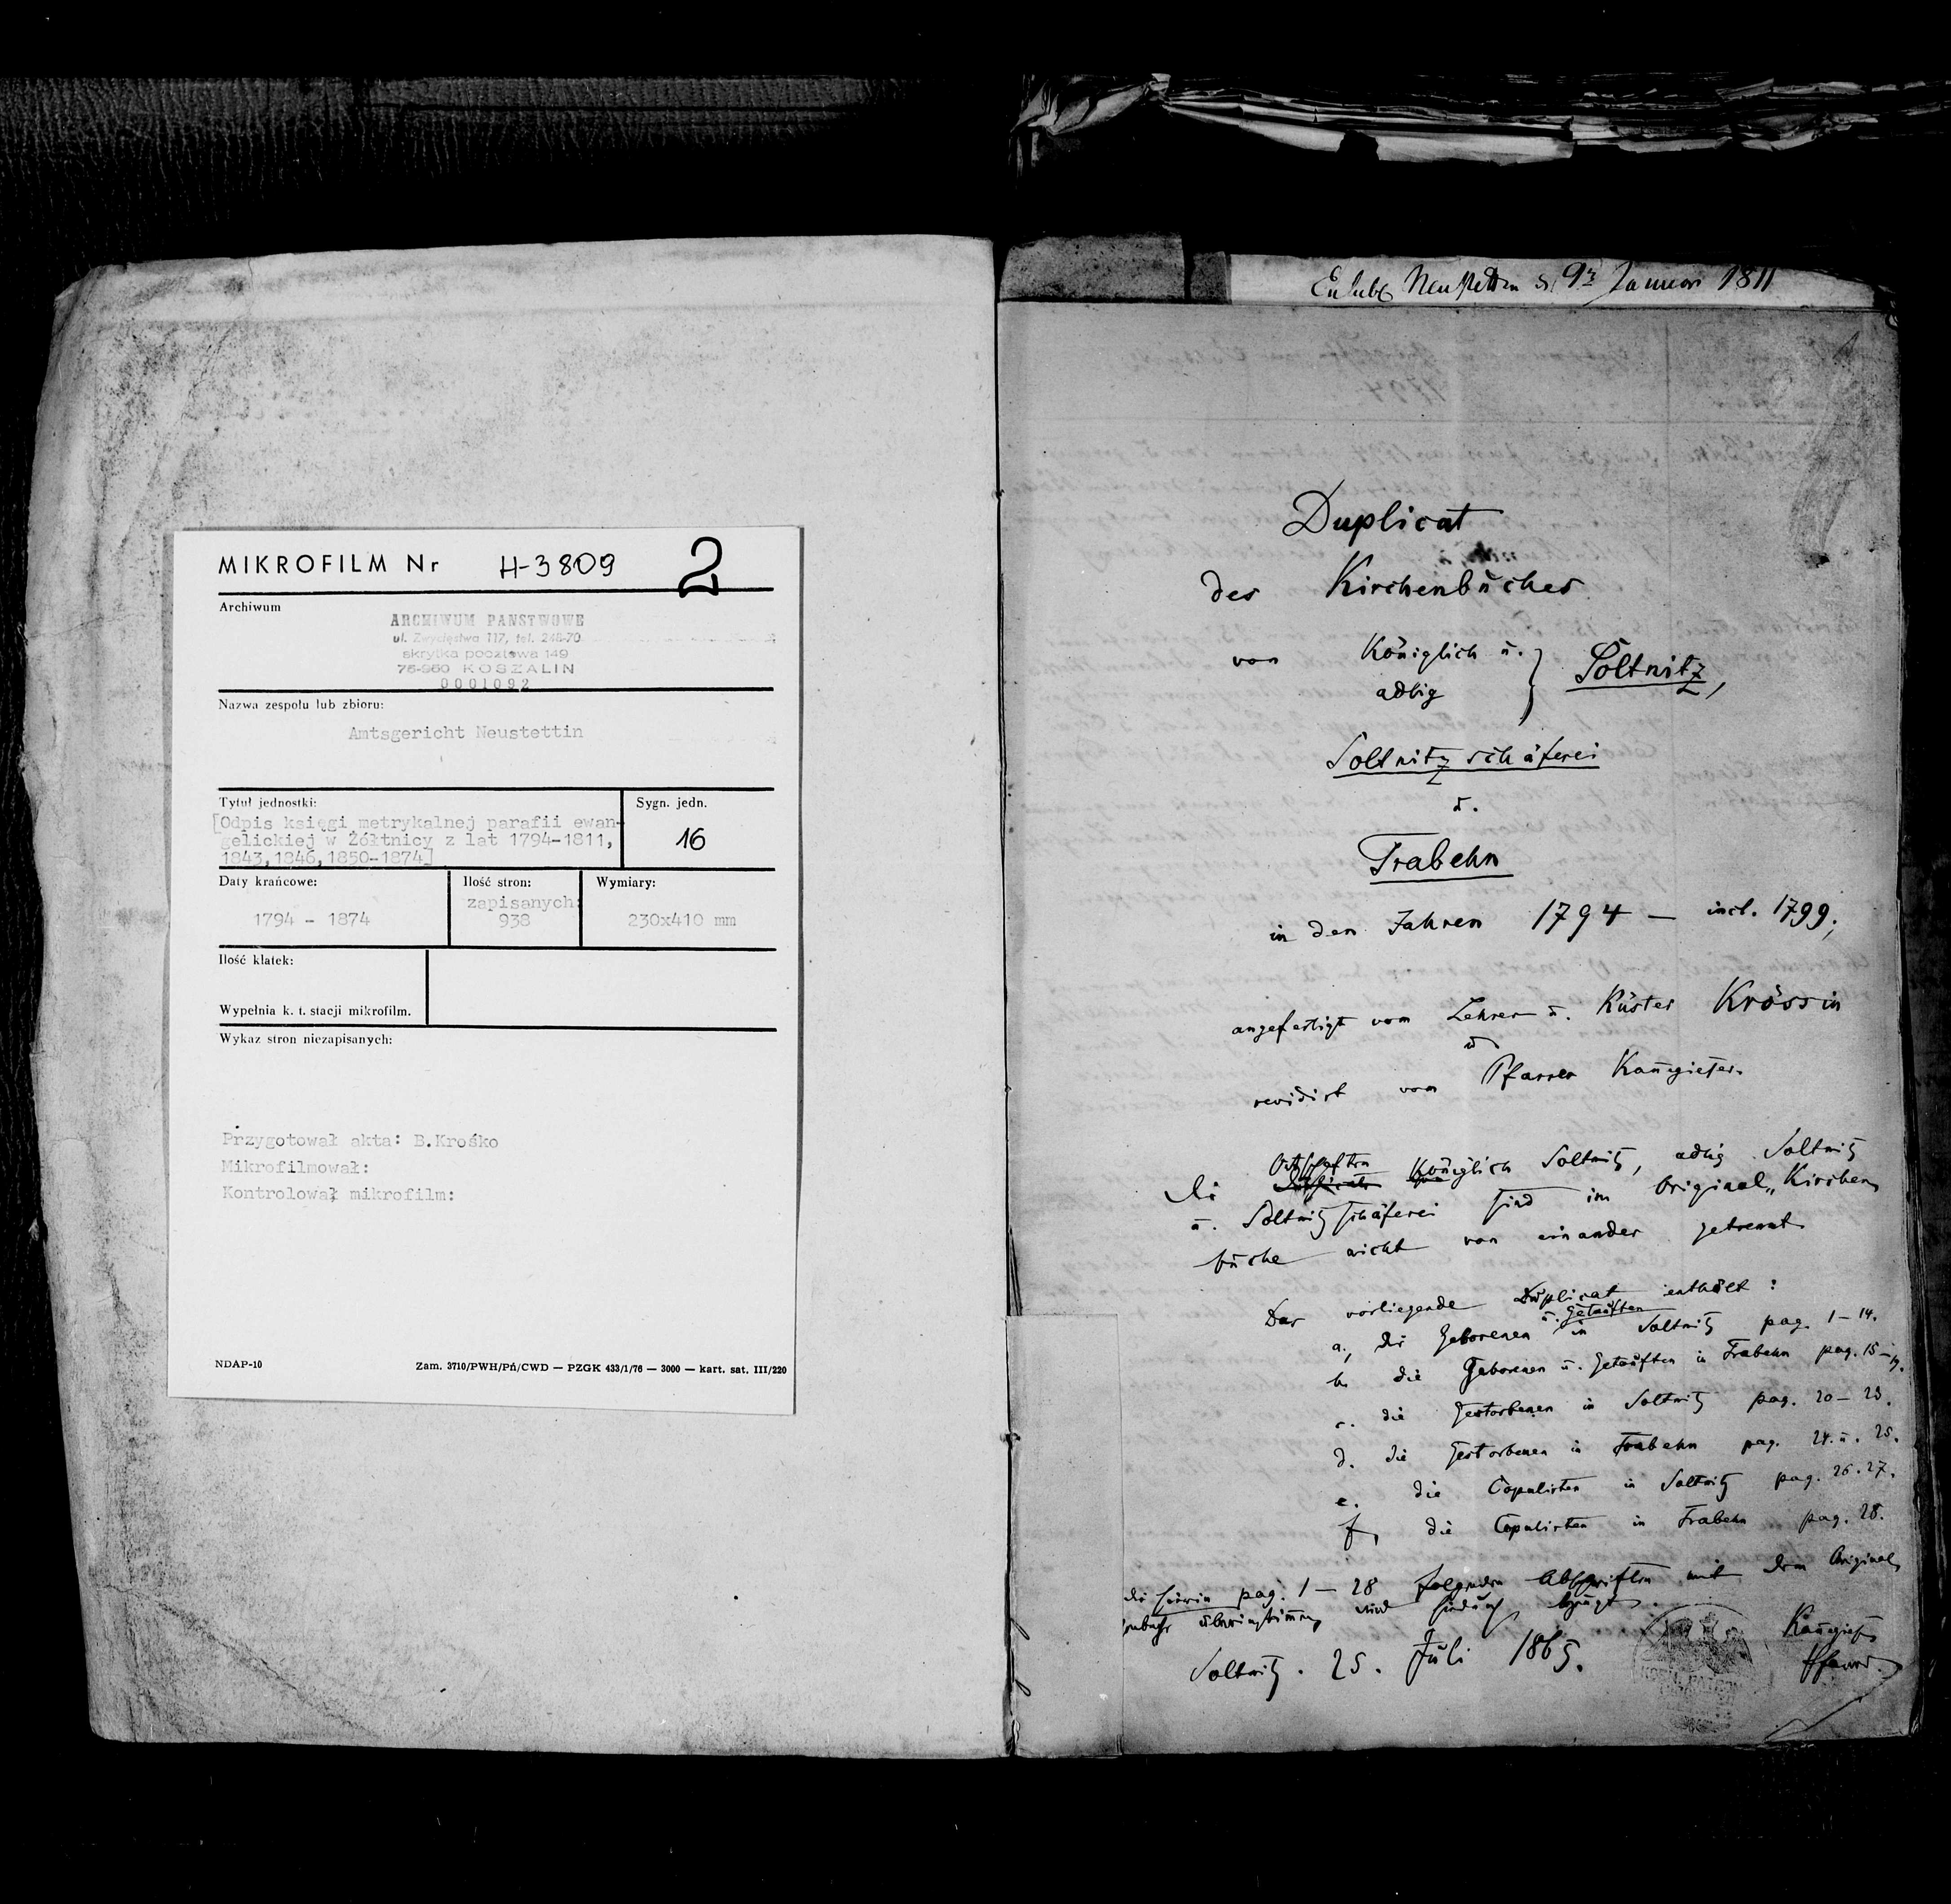 MIKROFILM Nr H-3809 2
Archiwum
ARCHIWUM PAŃSTWOWE
ul. Zwycięstwa 117, tel. 248-70
skrytka pocztowa 149
75-950 KOSZALIN
0001092
Nazwa zespołu lub zbioru:
Amtsgericht Neustettin
Tytuł jednostki:
Sygn. jedn.
[Odpis księgi metrykalnej parafii ewan-
gelickiej w Żółtnicy z lat 1794-1811,
1843,1846,1850-1874]
16
Daty krańcowe:
Ilość stron:
Wymiary:
zapisanych:
1794 - 1874
938
230x410 mm
Ilość klatek:
Wypełnia k. t. stacji mikrofilm.
Wykaz stron niezapisanych:
Przygotował akta: B.Krośko
Mikrofilmował:
Kontrolował mikrofilm:
NDAP-10
Zam. 3710/PWH/Pń/CWD — PZGK 433/1/76 — 3000 — kart. sat. III/220
Neustettin 9 Januar 1811
Duplicat
des Kirchenbuches
von Königlich u. } Soltnitz,
adlig
Soltnitzschäferei
u.
Trabehn
in den Jahren 1794 — incl. 1799;
angefertigt vom Lehrer u. Küster Krössin
u
revidirt vom Pfarrer Kanngießer.
Die Ortschaften Königlich Soltnitz, adlig Soltnitz
u. Soltnitzschäferei sind im Original „Kirchen
buche nicht von einander getrennt
Das vorliegende Duplicat enthält:
a, die Geborenen u. Getauften in Soltnitz pag. 1—14.
b. die Geborenen u. Getauften in Trabehn pag. 15—19.
c. die Gestorbenen in Soltnitz pag. 20—23.
d. die Gestorbenen in Trabehn pag. 24. u. 25.
e. die Copulirten in Soltnitz pag. 26. 27.
f, die Copulirten in Trabehn pag. 28.
die hierin pag. 1—28 folgenden Abschriften mit dem Original
übereinstimmen wird hiedurch bezeugt.
Soltnitz. 25. Juli 1865.
Kanngießer
Pfarrer.